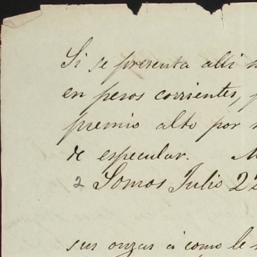 Si se presenta alli
en pesos corrientes,
premio alto por
de especular.
2 Somos Julio 22
sus onzas á como le